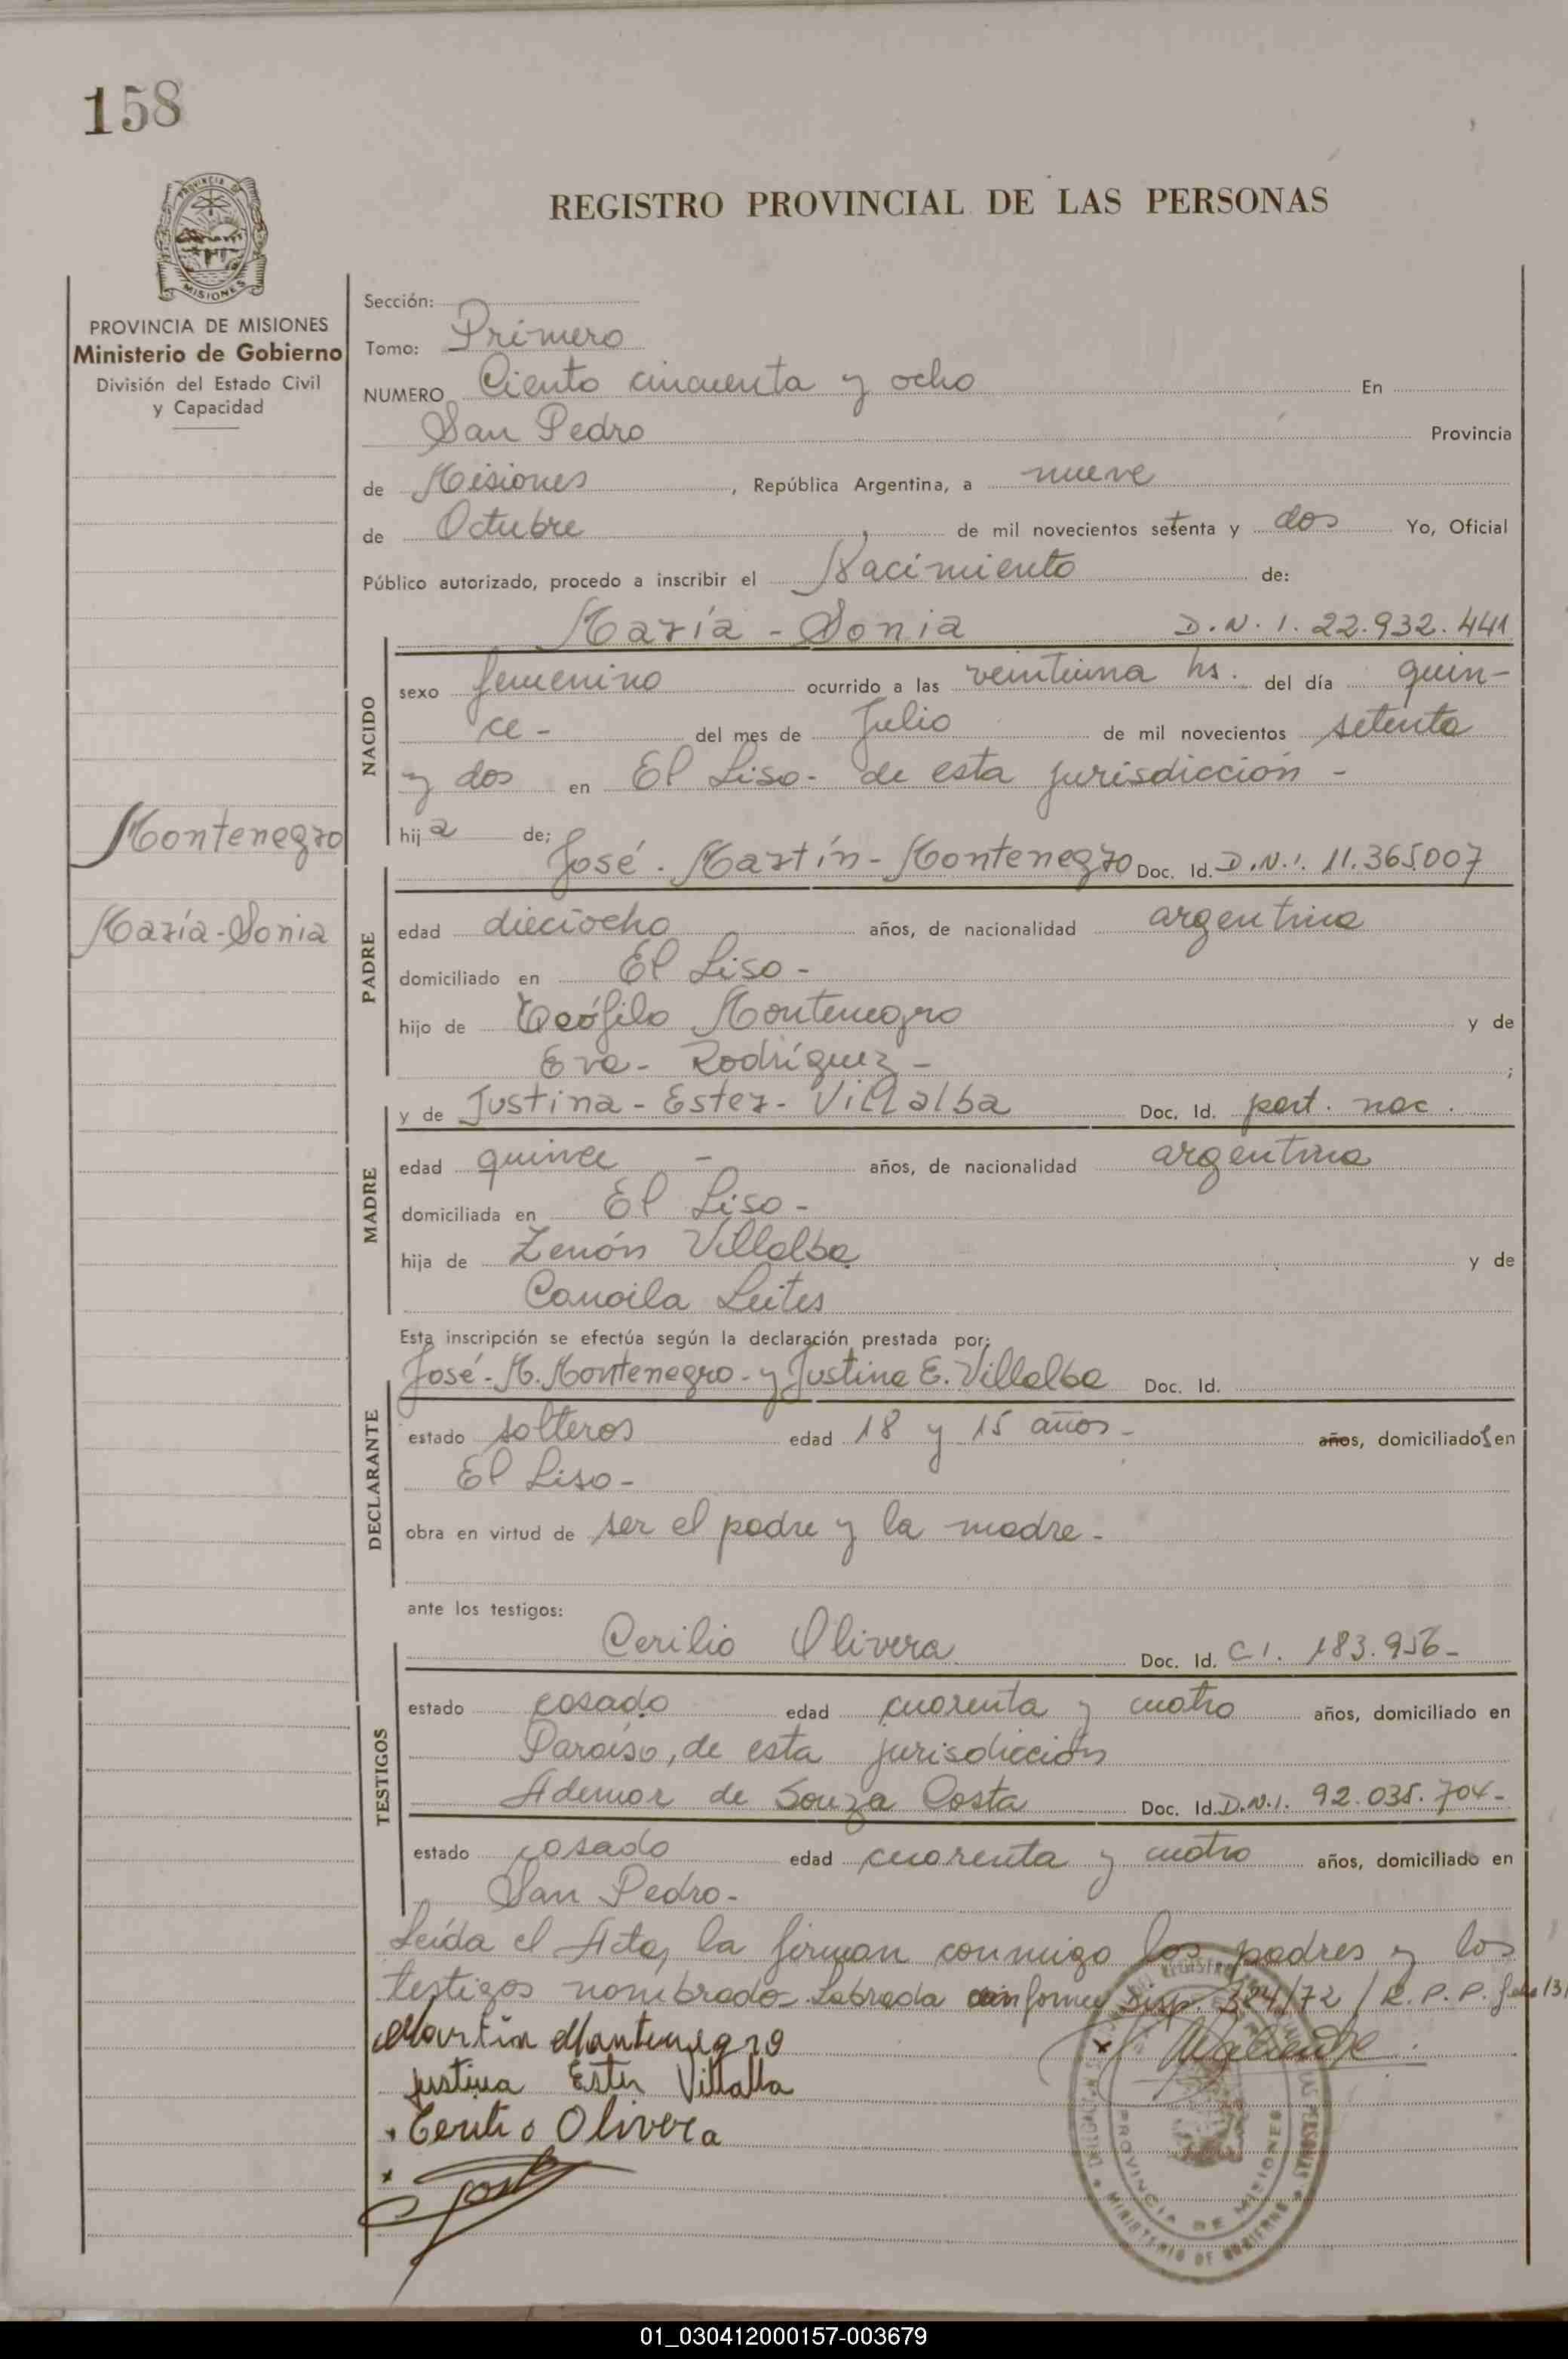 158
PROVINCIA DE MISIONES
REGISTRO PROVINCIAL DE LAS PERSONAS
PROVINCIA DE MISIONES
Ministerio de Gobierno
División del Estado Civil
y Capacidad
Montenegro
María - Sonia
Sección:
Tomo: Primero
NUMERO Ciento cincuenta y ocho En
San Pedro Provincia
de Misiones, República Argentina, a nueve
de Octubre, de mil novecientos setenta y dos Yo, Oficial
Público autorizado, procedo a inscribir el Nacimiento de:
María - Sonia D.N.I. 22.932.441
NACIDO
sexo femenino ocurrido a las veintiuna hs. del día quin-
ce - del mes de Julio de mil novecientos setenta
y dos en El Liso - de esta jurisdicción -
hija de:
José - Martín - Montenegro Doc. Id. D.N.I. 11.365.007
PADRE
edad dieciocho años, de nacionalidad argentina
domiciliado en El Liso -
hijo de Teófilo Montenegro y de
Eva - Rodríguez - ;
y de Justina - Ester - Villalba Doc. Id. part. nac.
MADRE
edad quince - años, de nacionalidad argentina
domiciliada en El Liso -
hija de Zenón Villalba y de
Leites
Esta inscripción se efectúa según la declaración prestada por:
José - M. Montenegro - y Justina E. Villalba Doc. Id.
DECLARANTE
estado solteros edad 18 y 15 años - años, domiciliados en
El Liso -
obra en virtud de ser el padre y la madre -
ante los testigos:
Cerilio Olivera Doc. Id. C.I. 183.956 -
TESTIGOS
estado casado edad cuarenta y cuatro años, domiciliado en
Paraíso, de esta jurisdicción
Ademar de Souza Costa Doc. Id. D.N.I. 92.035.704 -
estado casado edad cuarenta y cuatro años, domiciliado en
San Pedro -
Leída el Acta, la firman conmigo los padres y los
testigos nombrados - Labrada conforme Disp. 324/72 / R.P.P.
Martin Montenegro
Justina Ester Villalba
Cerilio Olivera
PROVINCIA DE MISIONES
MINISTERIO DE GOBIERNO
01_030412000157-003679